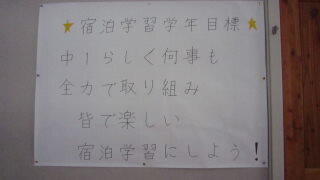 ★宿泊学習学年目標★
中1らしく何事も
全力で取り組み
皆で楽しい
宿泊学習にしよう!